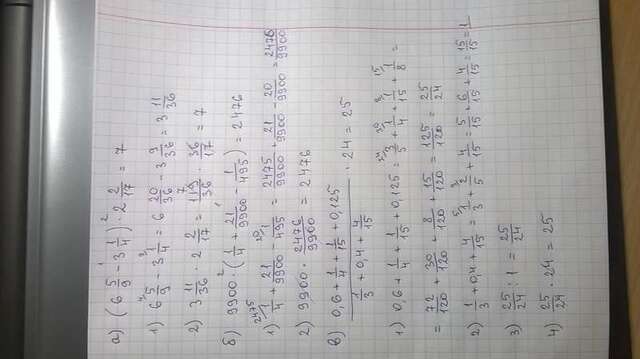 а) (6 5/9 - 3 1/4) · 2 2/17 = 7
1) 6 5/9 - 3 1/4 = 6 20/36 - 3 9/36 = 3 11/36
2) 3 11/36 · 2 2/17 = 119/36 · 36/17 = 7
б) 9900 · (1/4 + 21/9900 - 1/495) = 2476
1) 1/4 + 21/9900 - 1/495 = 2475/9900 + 21/9900 - 20/9900 = 2476/9900
2) 9900 · 2476/9900 = 2476
в) (0,6 + 1/4 + 1/15 + 0,125)/(1/3 + 0,4 + 4/15) · 24 = 25
1) 0,6 + 1/4 + 1/15 + 0,125 = 3/5 + 1/4 + 1/15 + 1/8 =
= 72/120 + 30/120 + 8/120 + 15/120 = 125/120 = 25/24
2) 1/3 + 0,4 + 4/15 = 1/3 + 2/5 + 4/15 = 5/15 + 6/15 + 4/15 = 15/15 = 1
3) 25/24 : 1 = 25/24
4) 25/24 · 24 = 25